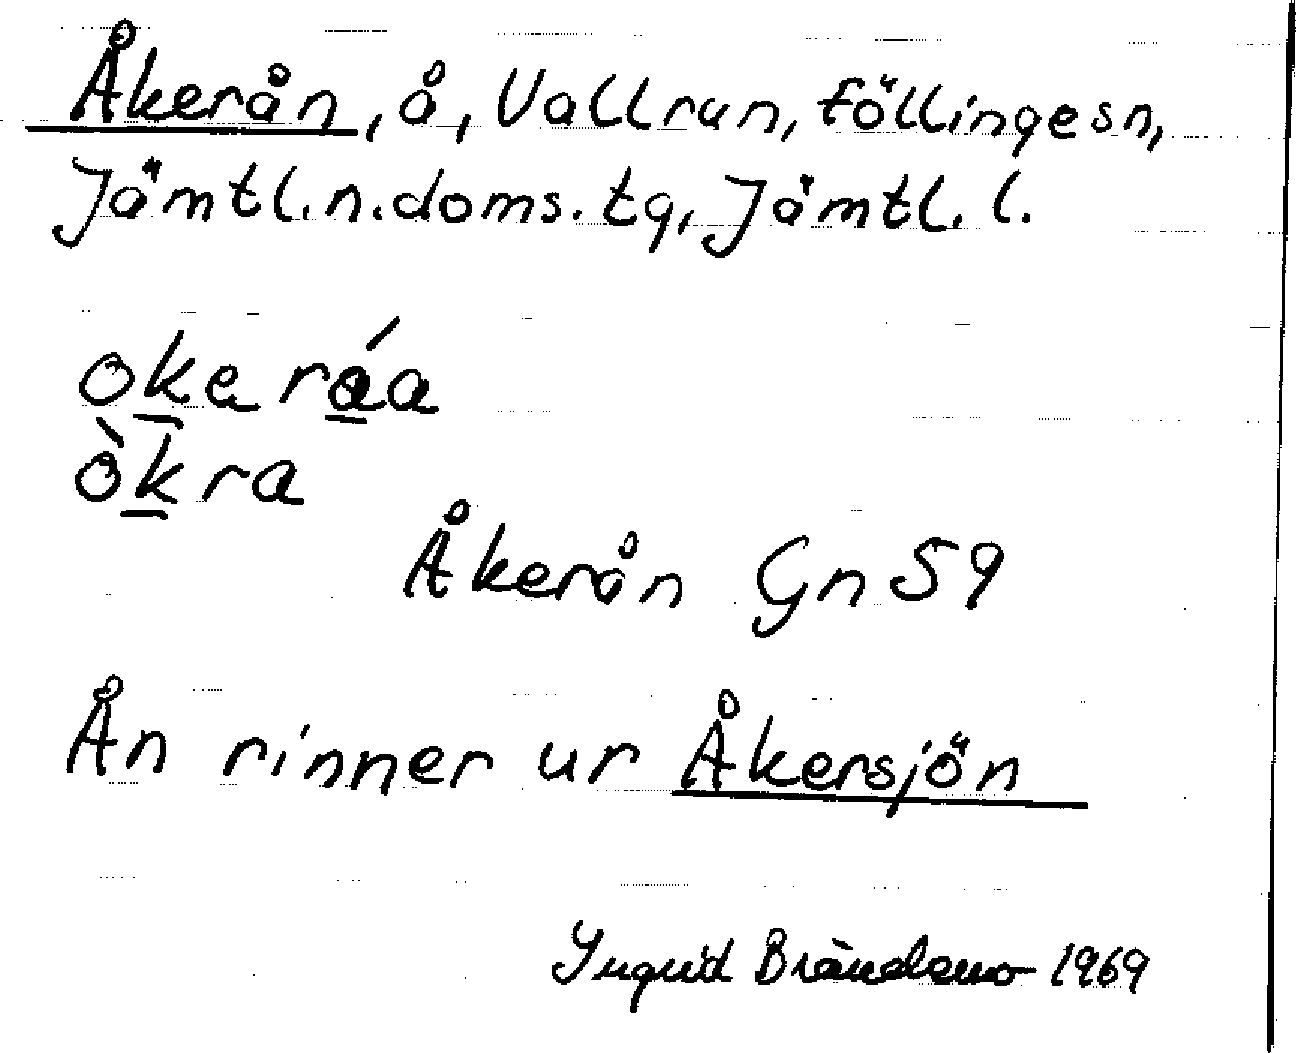 Åkerån, å, Vallrun, föllingesn,
Jämtl.n.doms.tg, Jämtl. l.
okeráa
òkra
Åkerån Gn 59
Ån rinner ur Åkersjön
Ingrid Brändemo 1969